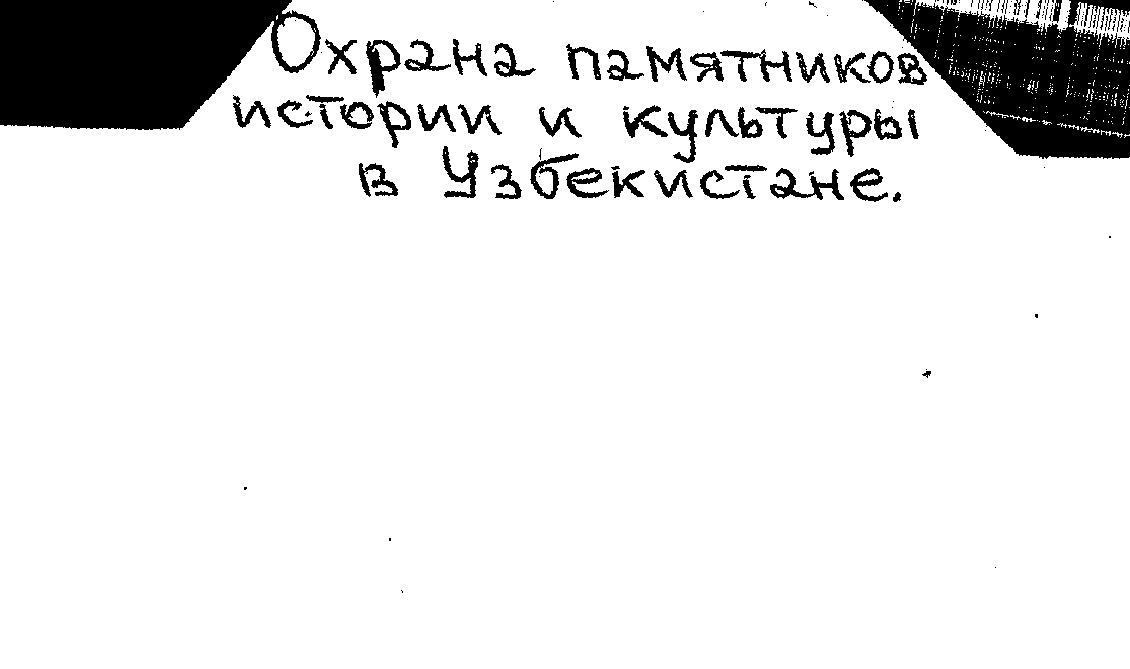 Охрана памятников
истории и культуры
в Узбекистане.